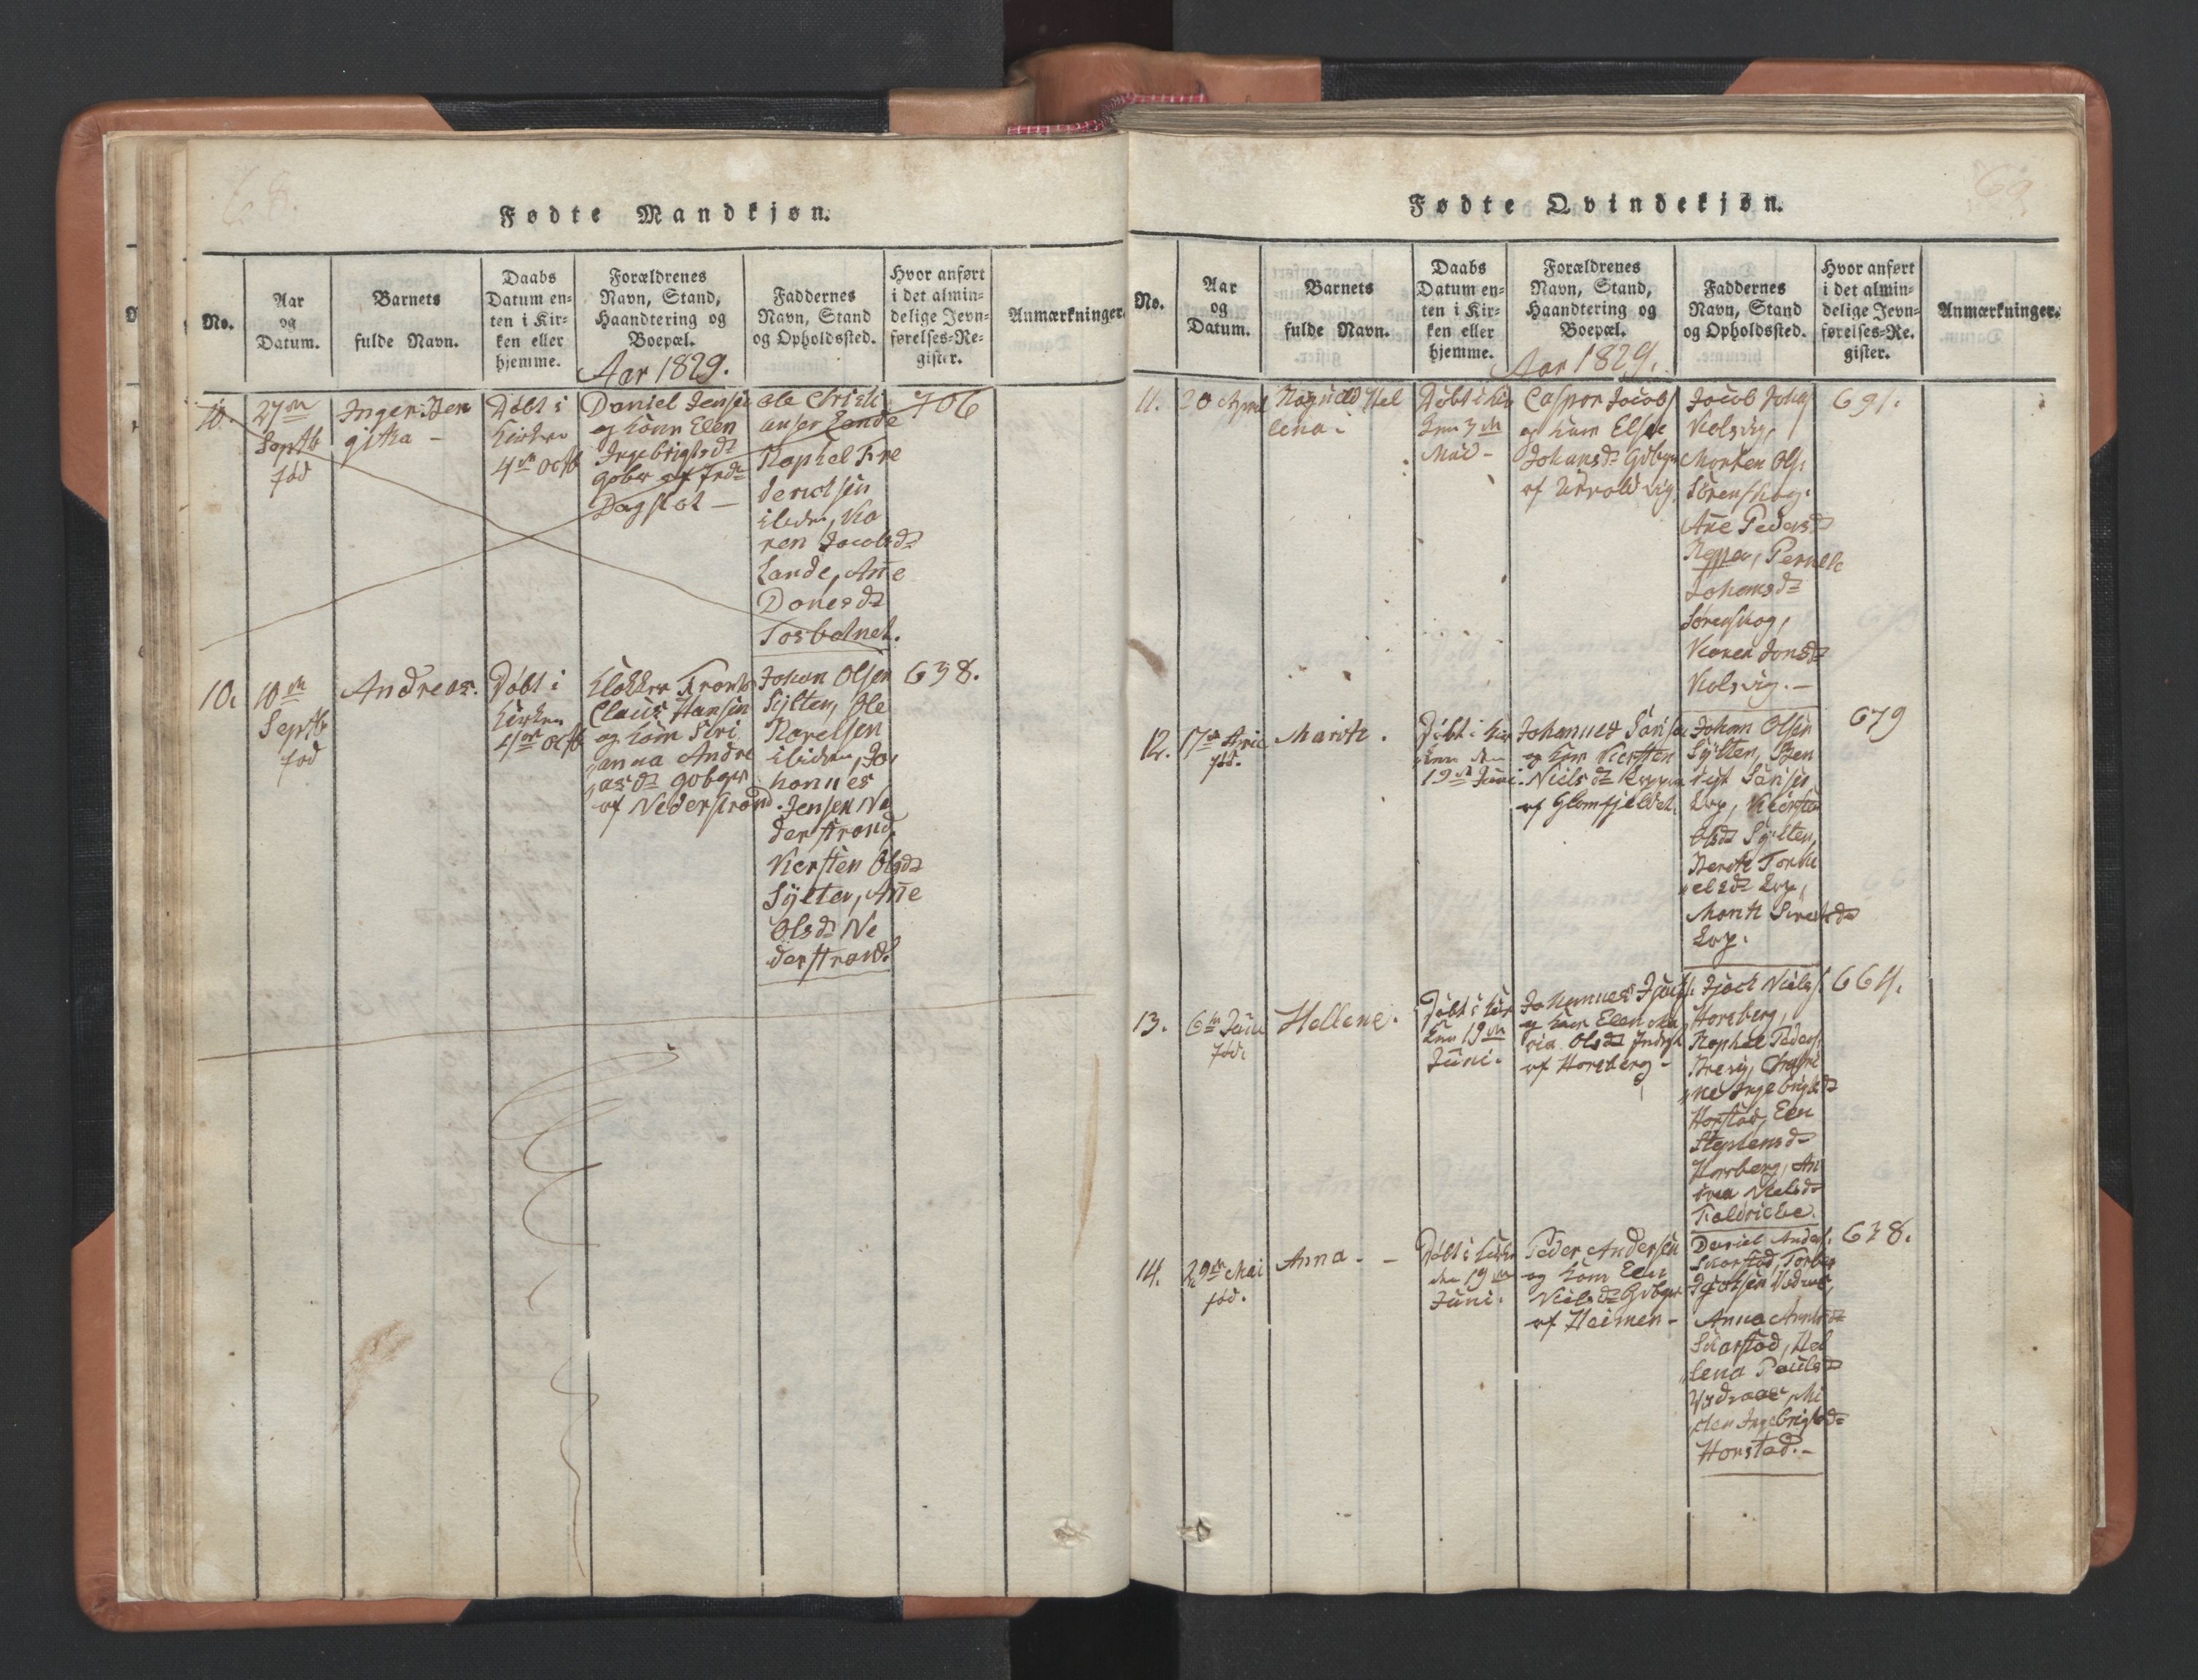 68.
Fødte Mandkjøn.
No.
Aar
og
Datum.
Barnets
fulde Navn.
Daabs
Datum en-
ten i Kir-
ken eller
hjemme.
Forældrenes
Navn, Stand,
Haandtering og
Boepæl.
Faddernes
Navn, Stand
og Opholdssted.
Hvor anført
i det almin-
delige Jevn-
førelses-Re-
gister.
Anmærkninger.
Aar 1829.
10.
27de
Septb
fød
Inger Ben
githa -
Døbt i
Kirken
4de Octb
Daniel Jensen
og Kone Elen
Ingebrigtsd:
Dagslot -
Ole Christi
ansen Lande
Raphel Fre
derichsen
ibidem, Ka
ren Jacobsd:
Lande, Anne
Danesd:
Tosbotnet.
706
10.
10de
Septb
fød
Andreas.
Døbt i
Kirken
4de Octb
Klokker Frants
Claus Hansen
og Kone Seri
anna Andre
asd: gobgr
af Nederstrand.
Johan Olsen
Sylten, Ole
Karelsen
ibidem, Jo
hannes
Jensen Ne
derstrand
Kiersten Olsd:
Sylten, Anne
Olsd: Ne
derstrand.
638.
69
Fødte Qvindekjøn.
No.
Aar
og
Datum.
Barnets
fulde Navn.
Daabs
Datum en-
ten i Kir-
ken eller
hjemme.
Forældrenes
Navn, Stand,
Haandtering og
Boepæl.
Faddernes
Navn, Stand
og Opholdssted.
Hvor anført
i det almin-
delige Jevn-
førelses-Re.
gister.
Anmærkninger.
Aar 1829.
11.
20 April
Hel
lena.
Døbt i Kir
ken 3de
Mai -
Caspar Jacobs
og Kone Else
Johansd: Gdbgr
Jacob Johas
Kolsvig,
Morten Ols:
Sørenskog.
Anne Pedersd:
Reppen, Pernele
Johansd:
Sørenskog,
Karen Jonsd:
Kolsvig. -
691.
12.
17de
fød.
Marith.
Døbt i Kir
ken den
19de Juni.
Johannes
og Kone Kiersten
Nielsd:
af Glomfieldet.
Johan Olsen
Sylten, Ben
Olsd: Sylten,
Berith Torki
elsd:
Marit
679
13.
6de Juni
fød.
Hellene.
Døbt i Kir
ken 19de
Juni.
Johannes
og Kone Elen Ma
ria Olsd:
af Horsberg -
Niels:
Horsberg,
Raphel Peders:
ne Ingebrigtsd:
Horstad, Elen
Stephensd:
Horsberg, An
Nielsd:
664.
14.
29de Mai
fød.
Anna. -
Døbt i Kirken
den 19de
Juni.
Peder Andersen
og Kone Elen
Nielsd: Gdbgr
af Heimen -
Daniel Anders:
Skarstad,
Anna
Skarstad, Hel
lena Paulsd:
Ma
Ingebrigtsd:
Horstad. -
678.